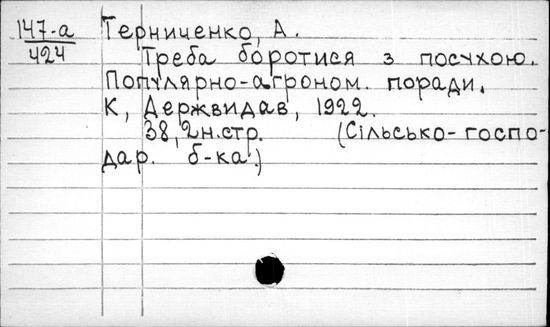 147-а
424
Терниченко, А.
Треба боротися з посухою.
Популярно-агроном. поради.
К, Держвидав, 1922.
38, 2н.стр. (Сільсько-госпо-
дар. б-ка.)